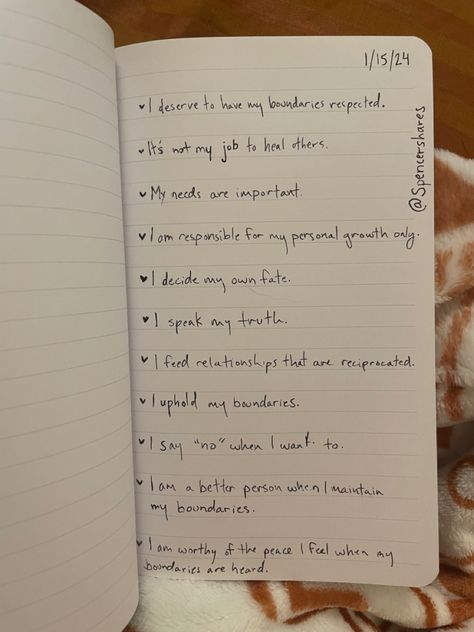 1/15/24
♥ I deserve to have my boundaries respected.
♥ It's not my job to heal others.
♥ My needs are important.
♥ I am responsible for my personal growth only.
♥ I decide my own fate.
♥ I speak my truth.
♥ I feed relationships that are reciprocated.
♥ I uphold my boundaries.
♥ I say "no" when I want to.
♥ I am a better person when I maintain
my boundaries.
♥ I am worthy of the peace I feel when my
boundaries are heard.
@Spencershares